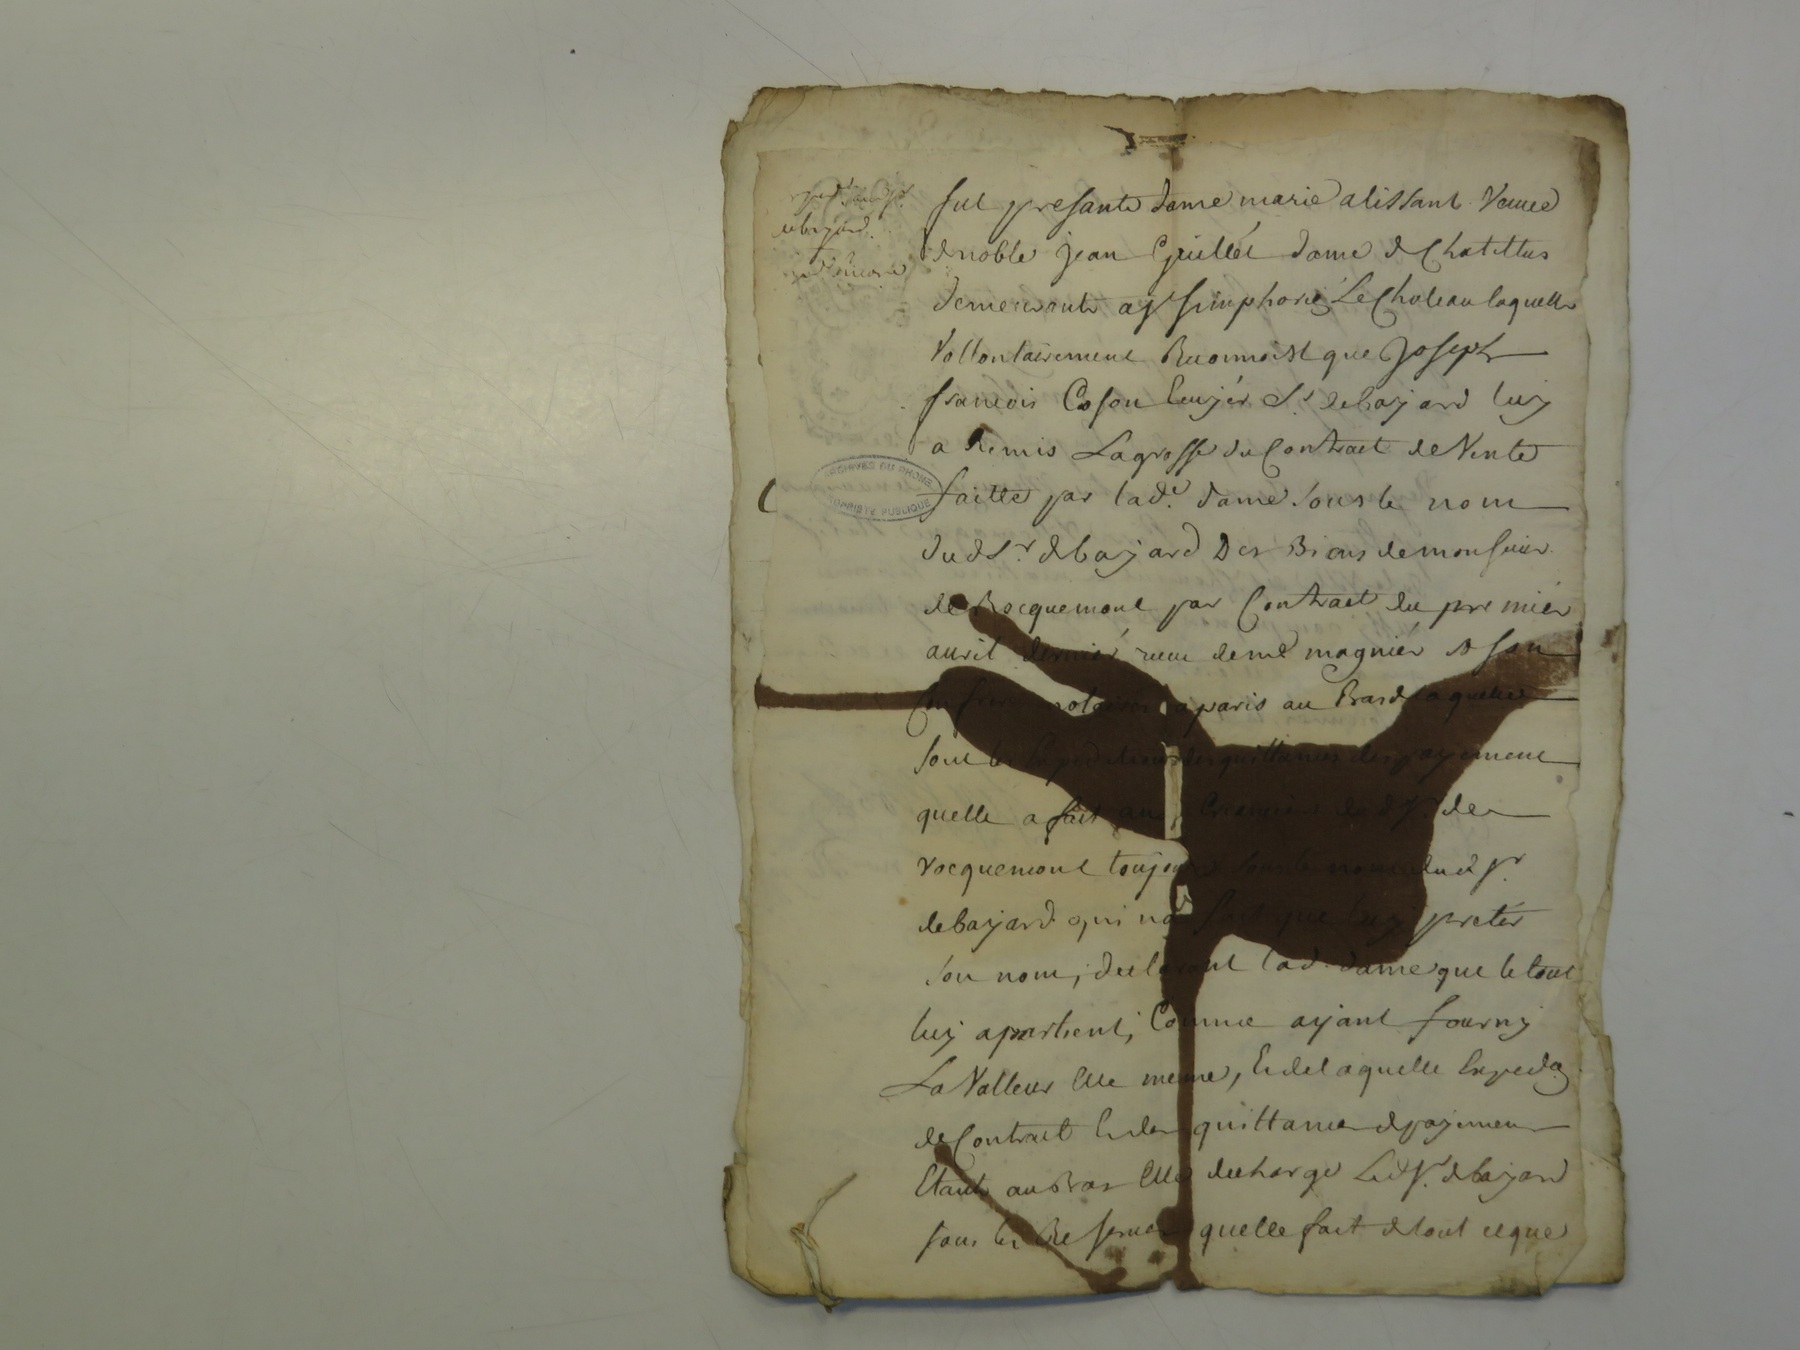 fut presante dame marie alissant Veuve
de noble jean Guillet dame de Chatillus
demeurante a St Simphorien Le Chateau laquelle
Vollontairement Reconnoist que Joseph
francois Coson Ecuyer Sr. de bayard luy
a Remis La grosse du Contract de Vente
ARCHIVES DU RHONE
PROPRIETE PUBLIQUE
faitte par lade. dame sous le nom
dud Sr. de bayard Des Biens de monsieur
de Rocquemont par Contract du premier
avril dernier receu de me magnier & son
Confrere notaires a paris au Bas de laquelle
sont les Expeditions des quittances des payement
quelle a fait aux Creanciers dud Sr. de
rocquemont toujours sous le nom dud Sr.
de bayard qui na fait que luy preter
son nom, declarant lad. dame que le tout
luy apartient, Comme ayant fourny
La Valleur Elle meme, & de laquelle Expedon
de Contract & des quittances de payement
Etant au Bas Elle decharge Led Sr. de bayard
sous les Reserves quelle fait de tout ce que